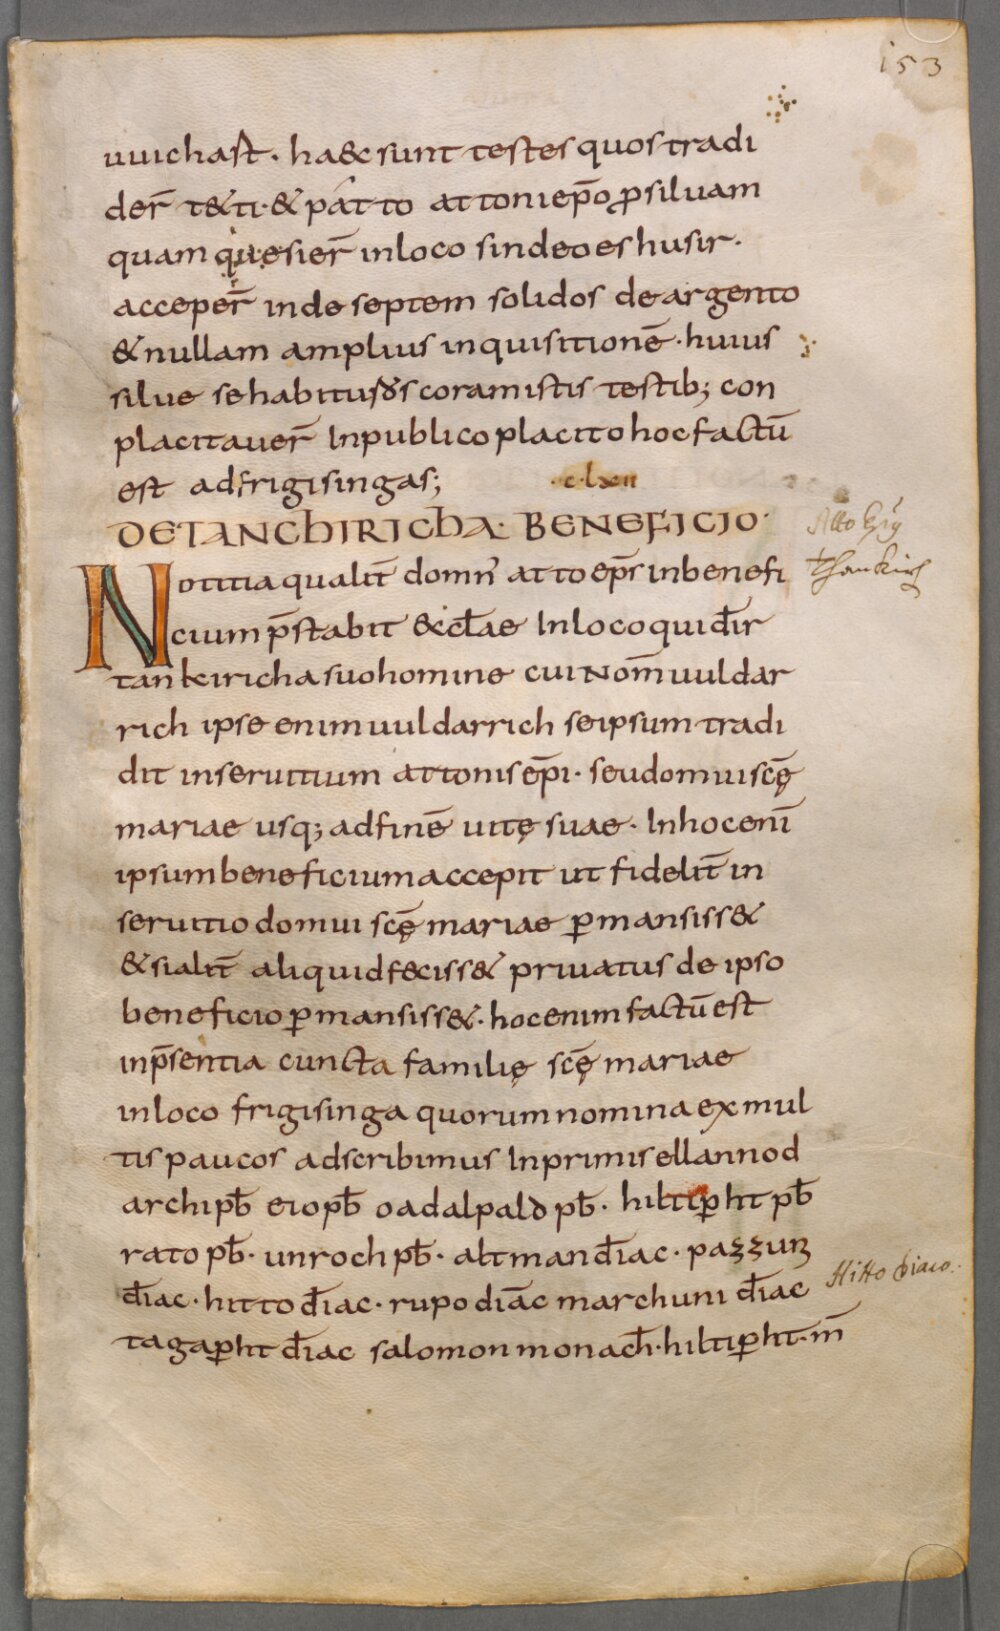 153
uuichast · ha&c sunt testes quos tradi
der̄ t&ti · & patto attoni ep̄o ꝓ siluam
quam quesier̄ in loco sindeoeshusir ·
acceper̄ inde septem solidos de argento
& nullam amplius inquisitionē · huius
silue se habituros coram istis testib; con
placitauer̄ In publico placito hoc factū
est ad frigisingas;
· c · lxii
DE TANCHIRICHA · BENEFICIO ·
Atto
Notitia qualit̄ domn̄ atto ep̄s in benefi
Thankirch
cium p̄stabit &cl̄ae In loco qui dr̄
tankiricha suo homine cui Nom̄ uuldar
rich ipse enim uuldarrich se ipsum tradi
dit in seruitium attonis ep̄i · seu domui scę̄
mariae usq; ad finē uitę suae · In hoc enī
ipsum beneficium accepit ut fidelit̄ in
seruitio domui scę̄ mariae ꝑmansiss&
& si alit̄ aliquid feciss& priuatus de ipso
beneficio ꝑmansiss& · hoc enim factū est
in p̄sentia cuncta familię scę̄ mariae
in loco frigisinga quorum nomina ex mul
tis paucos adscribimus In primis ellannod
archipb̄ eio pb̄ oadalpald pb̄ · hiltiꝑht pb̄
rato pb̄ · unroch pb̄ · altman diāc · pazzun
diāc · hitto diāc · rupo diāc marchuni diāc
Hitto diaco.
tagaꝑht diāc salomon monach̄ · hiltiꝑht · m̄